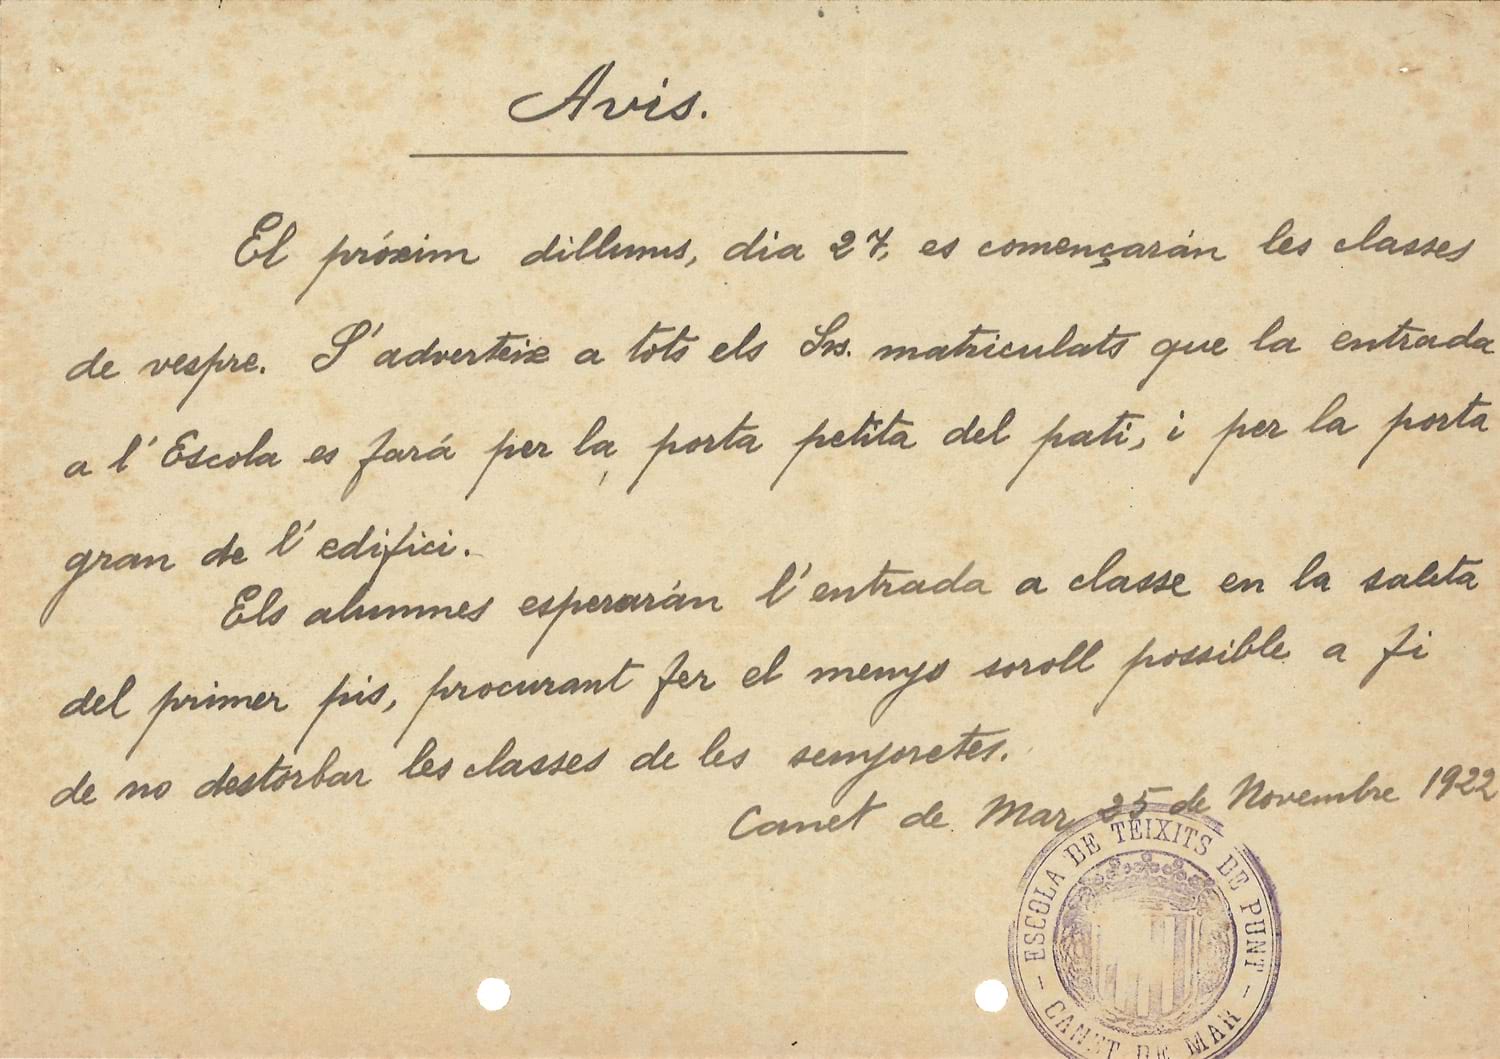 Avis.
El próxim dilluns, dia 27, es començarán les classes
de vespre. S'adverteix a tots els Srs. matriculats que la entrada
a l'Escola es fará per la porta petita del pati, i per la porta
gran de l'edifici.
Els alumnes esperarán l'entrada a classe en la saleta
del primer pis, procurant fer el menys soroll possible a fi
de no destorbar les classes de les senyoretes.
Canet de Mar 25 de Novembre 1922
ESCOLA DE TEIXITS DE PUNT
- CANET DE MAR -